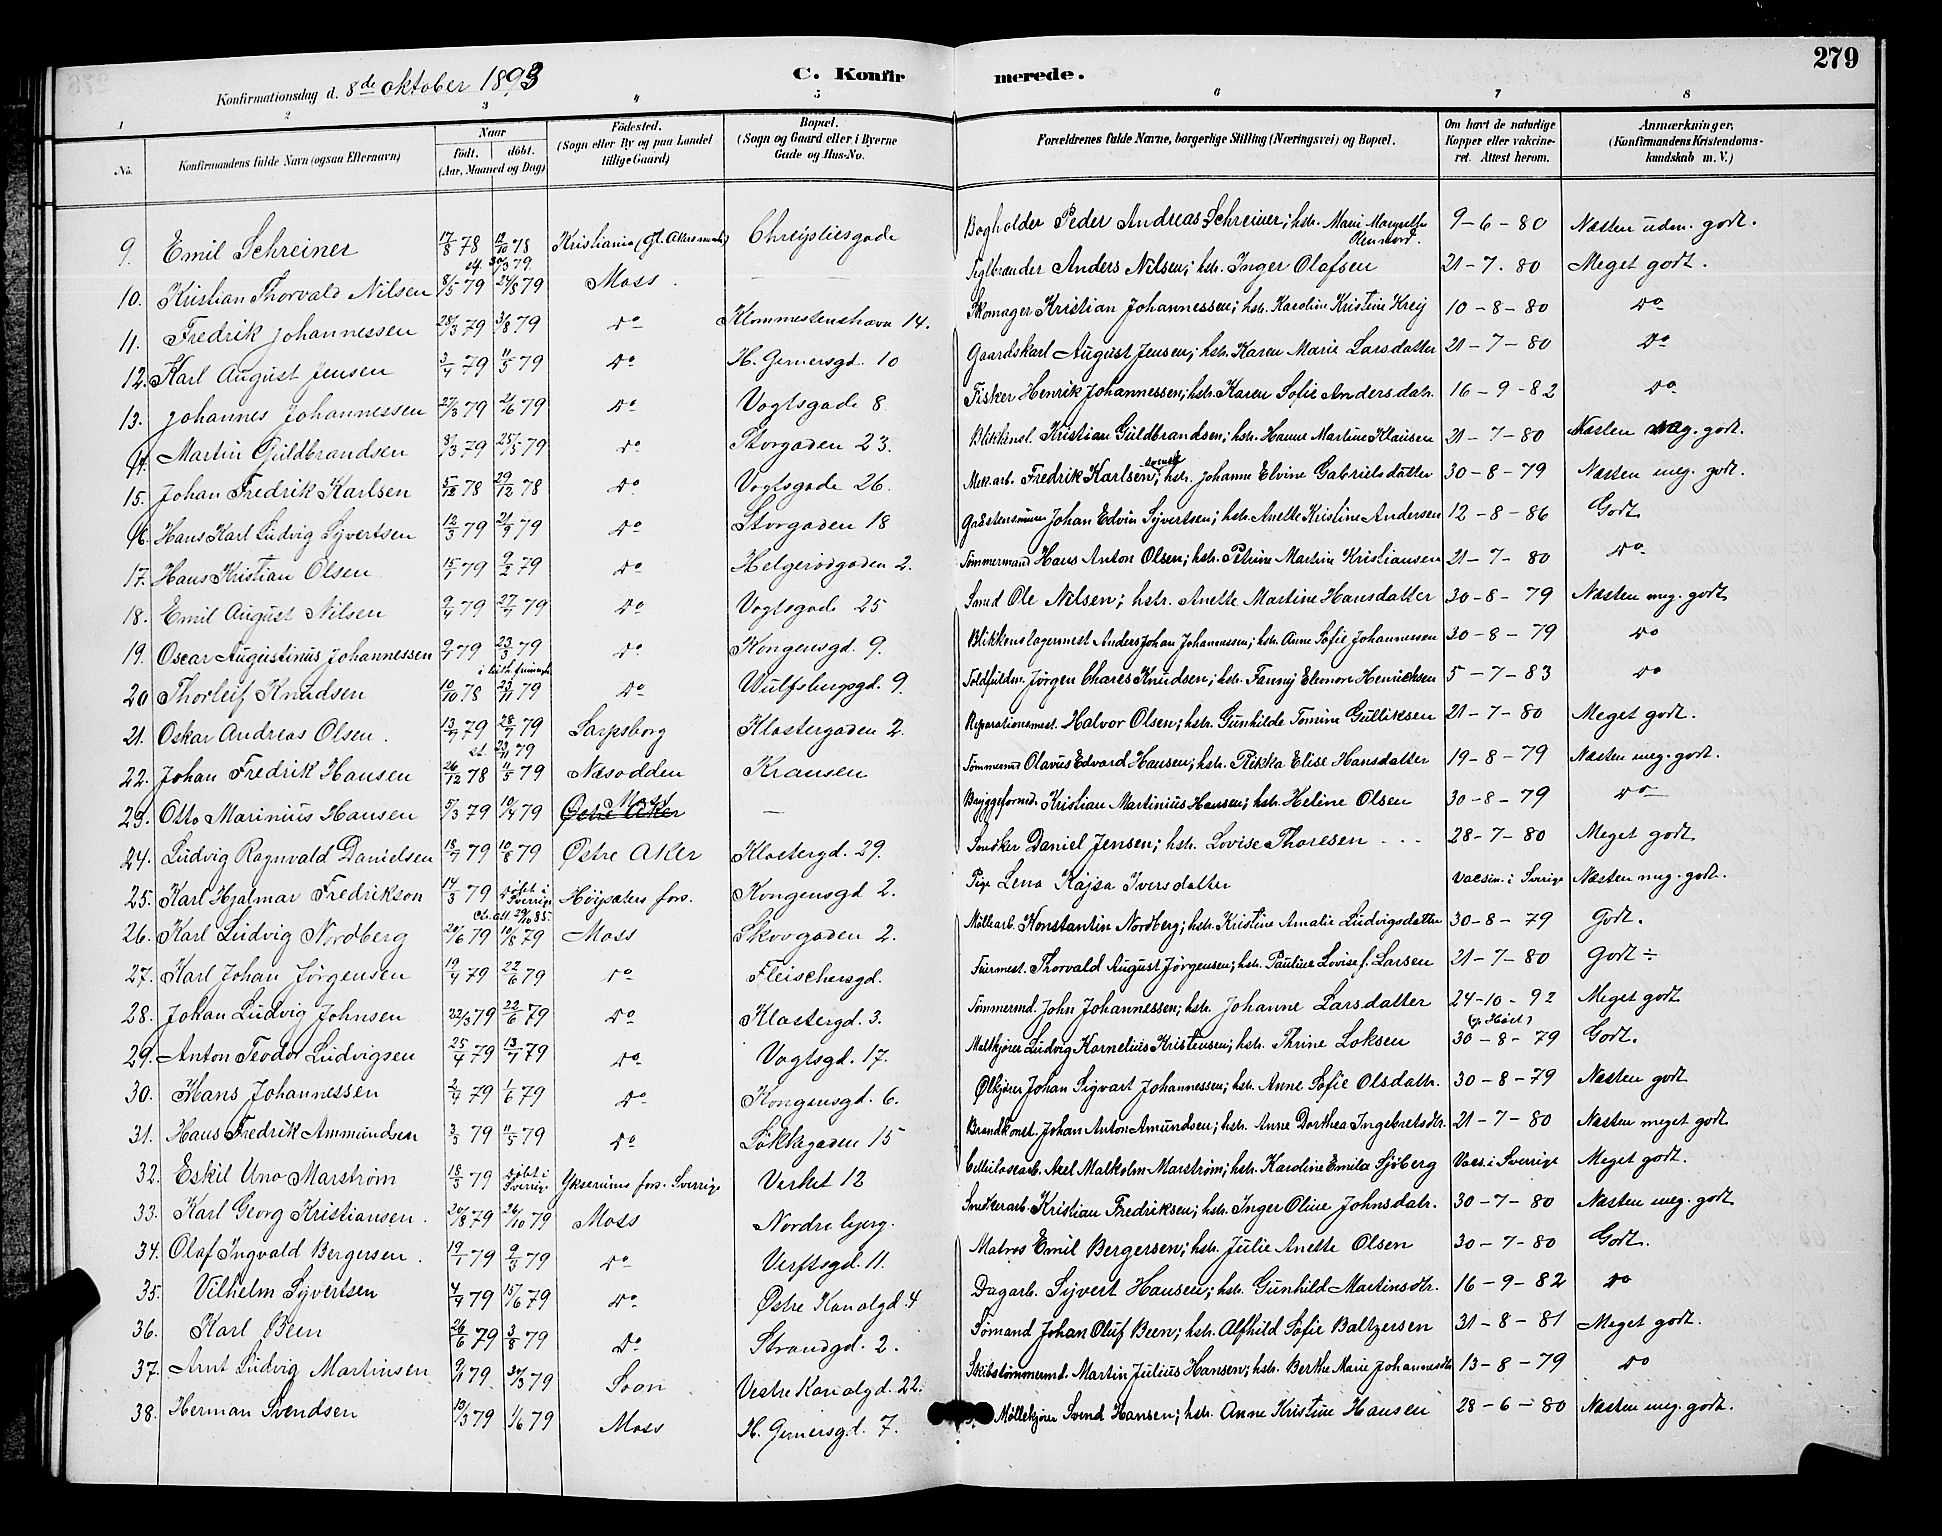 279
Konfirmationsdag d. 8de oktober 1893 C. Konfirmerede.
1 2 3 4 5 6 7 8
No. Konfirmandens fulde Navn (ogsaa Efternavn) Naar født. døbt. (Aar, Maaned og Dag) Fødested. (Sogn eller By og paa Landet tillige Gaard) Bopæl. (Sogn og Gaard eller i Byerne Gade og Hus-No. Forældrenes fulde Navne, borgerlige Stilling (Næringsvei) og Bopæl. Om havt de naturlige Kopper eller vakcineret. Attest herom. Anmærkninger. (Konfirmandens Kristendomskundskab m. V.)
9. Emil Schreiner 17/8 78 12/10 78 Kristiania (Gl. Akers menh) Bogholder Peder Andreas Schreiner; hstr. Marie 9-6-80 Næsten udm. godt.
10. Kristian Thorvald Nilsen 8/5 79 24/8 79 Moss — Teglbrænder Anders Nilsen; hstr. Inger Olafsen 21-7-80 Meget godt.
11. Fredrik Johannessen 28/3 79 3/8 79 Do 14. Skomager Kristian Johannessen; hstr. Karoline Kristine Krey 10-8-80 Do
12. Karl August Jensen 3/4 79 11/5 79 Do H. Gernersgd. 10 Gaardskarl August Jensen; hstr. Karen Marie Larsdatter 21-7-80 Do
13. Johannes Johannessen 27/3 79 2/6 79 Do Vogtsgade 8 Fisker Henrik Johannessen; hstr. Karen Sofie Andersdatr. 16-9-82 Do
14. Martin Guldbrandsen 8/3 79 25/5 79 Do Storgaden 23. Blikkensl. Kristian Guldbrandsen; hstr. Hanne Martine Klausen 21-7-80 Næsten meg. godt.
15. Johan Fredrik Karlsen 5/12 78 29/12 78 Do Vogtsgade 26. Mek.arb. Fredrik Karlsen, svensk; hstr. Johanne Elvine Gabrielsdatter 30-8-79 Næsten meg. godt.
16. Hans Karl Ludvig Syvertsen 12/3 79 21/9 79 Do Storgaden 18 Johan Edvin Syvertsen; hstr. Anette Kristine Andersen 12-8-86 Godt
17. Hans Kristian Olsen 15/1 79 9/2 79 Do Helgerødgaden 2. Tømmermand Hans Anton Olsen; hstr. Petrine Martine Kristiansen 21-7-80 Do
18. Emil August Nilsen 9/4 79 27/7 79 Do Vogtsgade 25 Smed Ole Nilsen; hstr. Anette Martine Hansdatter 30-8-79 Næsten meg. godt
19. Oscar Augustinus Johannessen 9/1 79 23/3 79 Do Kongensgd. 9. Blikkenslagermest Anders Johan Johannessen; hstr. Anne Sofie Johannesen 30-8-79 Do
20 Thorleif Knudsen 10/10 78 23/11 79 Do Wulfsbergsgd. 9. Toldfuldm. Jørgen Chares Knudsen; hstr. Fanny Elenore Henrichsen 5-7-83 Do
21. Oskar Andreas Olsen. 13/7 79 28/7 79 Sarpsborg Klostergaden 2. Reparationsmest. Halvor Olsen; hstr. Gunhilde Tomine Gulliksen 21-7-80 Meget godt.
22. Johan Fredrik Hansen 26/12 78 11/5 79 Næsodden Kransen Tømmermd Olavus Edvard Hansen; hstr. Rikka Elise Hansdatter 19-8-79 Næsten meg. godt.
23. Otto Marinius Hansen 5/3 79 10/4 79 Østre Aker Moss — Bryggeformd. Kristian Martinius Hansen; hstr. Heline Olsen 30-8-79 Do
24. Ludvig Ragnvald Danielsen 18/7 79 10/8 79 Østre Aker Klostergd. 29. Snedker Daniel Jensen; hstr. Lovise Thoresen 28-7-80 Meget godt
25. Karl Hjalmar Fredrikson 14/3 79 døbt i Sverrige Høgsäters fors. Kongensgd 2. Pige Lena Kajsa Iversdatter Vacsin. i Sverige Næsten meg. godt.
26. Karl Ludvig Nordberg 20/6 79 10/8 79 Moss Skovgaden 2. Møllearb. Konstantin Nordberg; hstr. Kristine Amalie Ludvigsdatter 30-8-79 Godt.
27. Karl Johan Jørgensen 19/4 79 22/6 79 Do Fleischersgd. Feiermest. Thorvald August Jørgensen; hstr. Pauline Lovise f. Larsen 21-7-80 Godt ÷
28. Johan Ludvig Johnsen 22/3 79 22/6 79 Do Klostergd. 3. Tømmermd. John Johannessen; hstr. Johanne Larsdatter 24-10-92 Meget godt
29. Anton Teodor Ludvigsen 25/4 79 13/7 79 Do Vogtsgd. 17. Maltkjører Ludvig Kornelius Kristensen; hstr. Thrine Loksen 30-8-79 Godt.
30. Hans Johannessen 2/4 79 1/6 79 Do Kongensgd. 6. Ølkjører Johan Sigvart Johannessen; hstr. Anne Sofie Olsdatr. 30-8-79 Næsten godt
31. Hans Fredrik Ammundsen 3/3 79 11/5 79 Do Løkkegaden 15 Brandkonst. Johan Anton Amundsen; hstr. Anne Dorthea Ingebretsdtr. 21-7-80 Næsten meget godt
32. Eskil Uno Marstrøm 18/3 79 døbt i Sverrige fors. Sverrige Verket 12 Cellulosearb. Axel Malkolm Marstrøm; hstr. Karoline Emilia Sjøberg Vacs. i Sverrige Meget godt.
33. Karl Georg Kristiansen. 20/8 79 26/10 79 Moss Nordre bjerg. Snedkerarb. Kristian Fredriksen; hstr. Inger Oline Johnsdatr. 30-7-80 Næsten meg. godt
34. Olaf Ingvald Bergersen. 19/1 79 9/3 79 Do Verftsgd. 11. Matros Emil Bergersen; hstr. Julie Anette Olsen 30-7-80 Godt.
35. Vilhelm Syvertsen 4/4 79 15/6 79 Do Østre Kanalgd. 4 Dagarb. Syvert Hansen; hstr. Gunhild Martinsdtr. 16-9-82 Do
36. Karl Been 26/6 79 3/8 79 Do Strandgd. 2. Sømand Johan Oluf Been; hstr. Alfhild Sofie Baltzersen 31-8-81 Meget godt.
37. Arnt Ludvig Martinsen 9/1 79 30/3 79 Soon Vestre Kanalgd. 22. Skibstømmermd. Martin Julius Hansen; hstr. Berthe Marie Johannesdtr 13-8-79 Do
38. Herman Svendsen 10/3 79 1/6 79 Moss H. Gernersgd. 7. Møllekjører Svend Hansen; hstr. Anne Kristine Hansen 28-6-80 Næsten meg. godt.